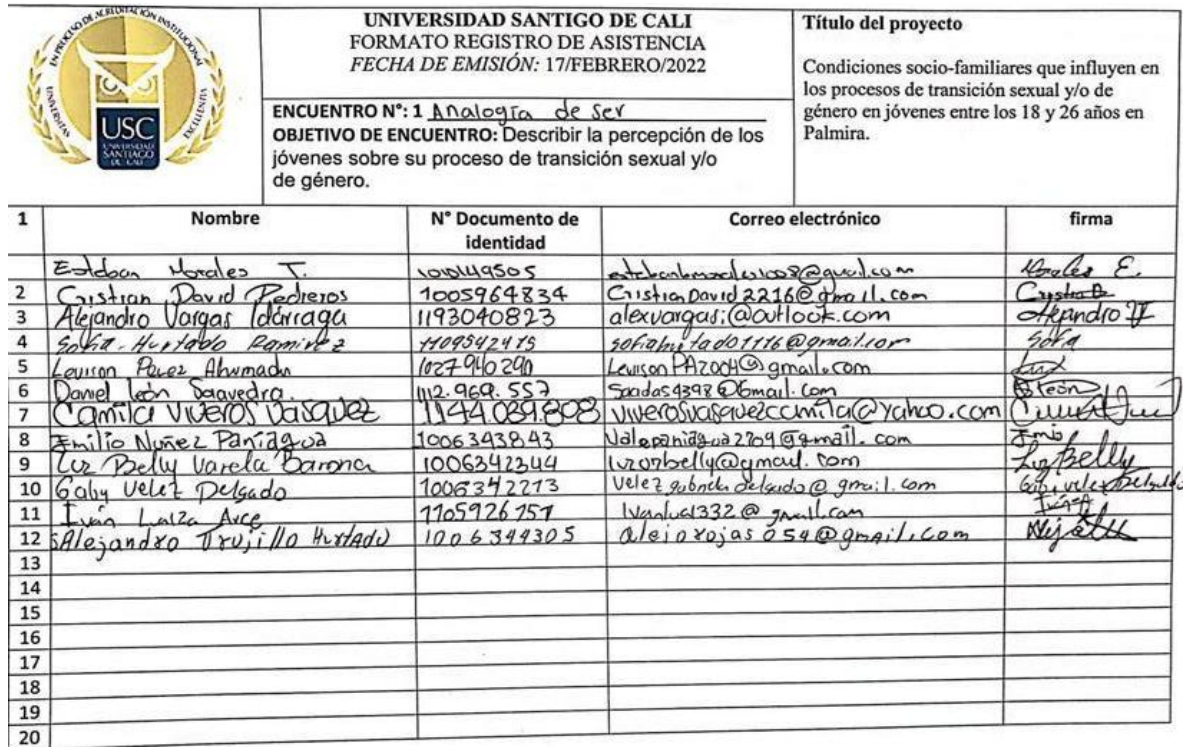 EN PROCESO DE ACREDITACIÓN INSTITUCIONAL
UNIVERSITAS
EXCELLENTIA
USC
UNIVERSIDAD
SANTIAGO
DE CALI
UNIVERSIDAD SANTIGO DE CALI
FORMATO REGISTRO DE ASISTENCIA
FECHA DE EMISIÓN: 17/FEBRERO/2022
ENCUENTRO N°: 1 Analogía de ser
OBJETIVO DE ENCUENTRO: Describir la percepción de los
jóvenes sobre su proceso de transición sexual y/o
de género.
Título del proyecto
Condiciones socio-familiares que influyen en
los procesos de transición sexual y/o de
género en jóvenes entre los 18 y 26 años en
Palmira.
1 Nombre N° Documento de identidad Correo electrónico firma
Esteban Morales T. Morales E.
2 Cristian David Pedreros 1005964834 CristianDavid2216@gmail.com
3 Alejandro Vargas Idárraga 1193040823 alexvargasi@outlook.com Alejandro
4 Sofia Hurtado Ramirez Sofia
5 Ahumada 1027940290 LeuisonPA2004@gmail.com
6 Daniel león Saavedra. 1112.969.557 Saadas4398@Gmail.com León
7 Camila Viveros Vasquez 1144.039.808 viverosvasquezcamila@yahoo.com
8 Emilio Nuñez Paniagua 1006343843 Valepaniagua2209@gmail.com Emilio
9 Luz Belly Varela Barona 1006342344 luzorbelly@gmail.com Luz Belly
10 Gaby Velez Delgado 1006342213 @gmail.com Delgado
11 Iván Arce
12 Alejandro Trujillo Hurtado 1006344305 alejorojas054@gmail.com
13
14
15
16
17
18
19
20